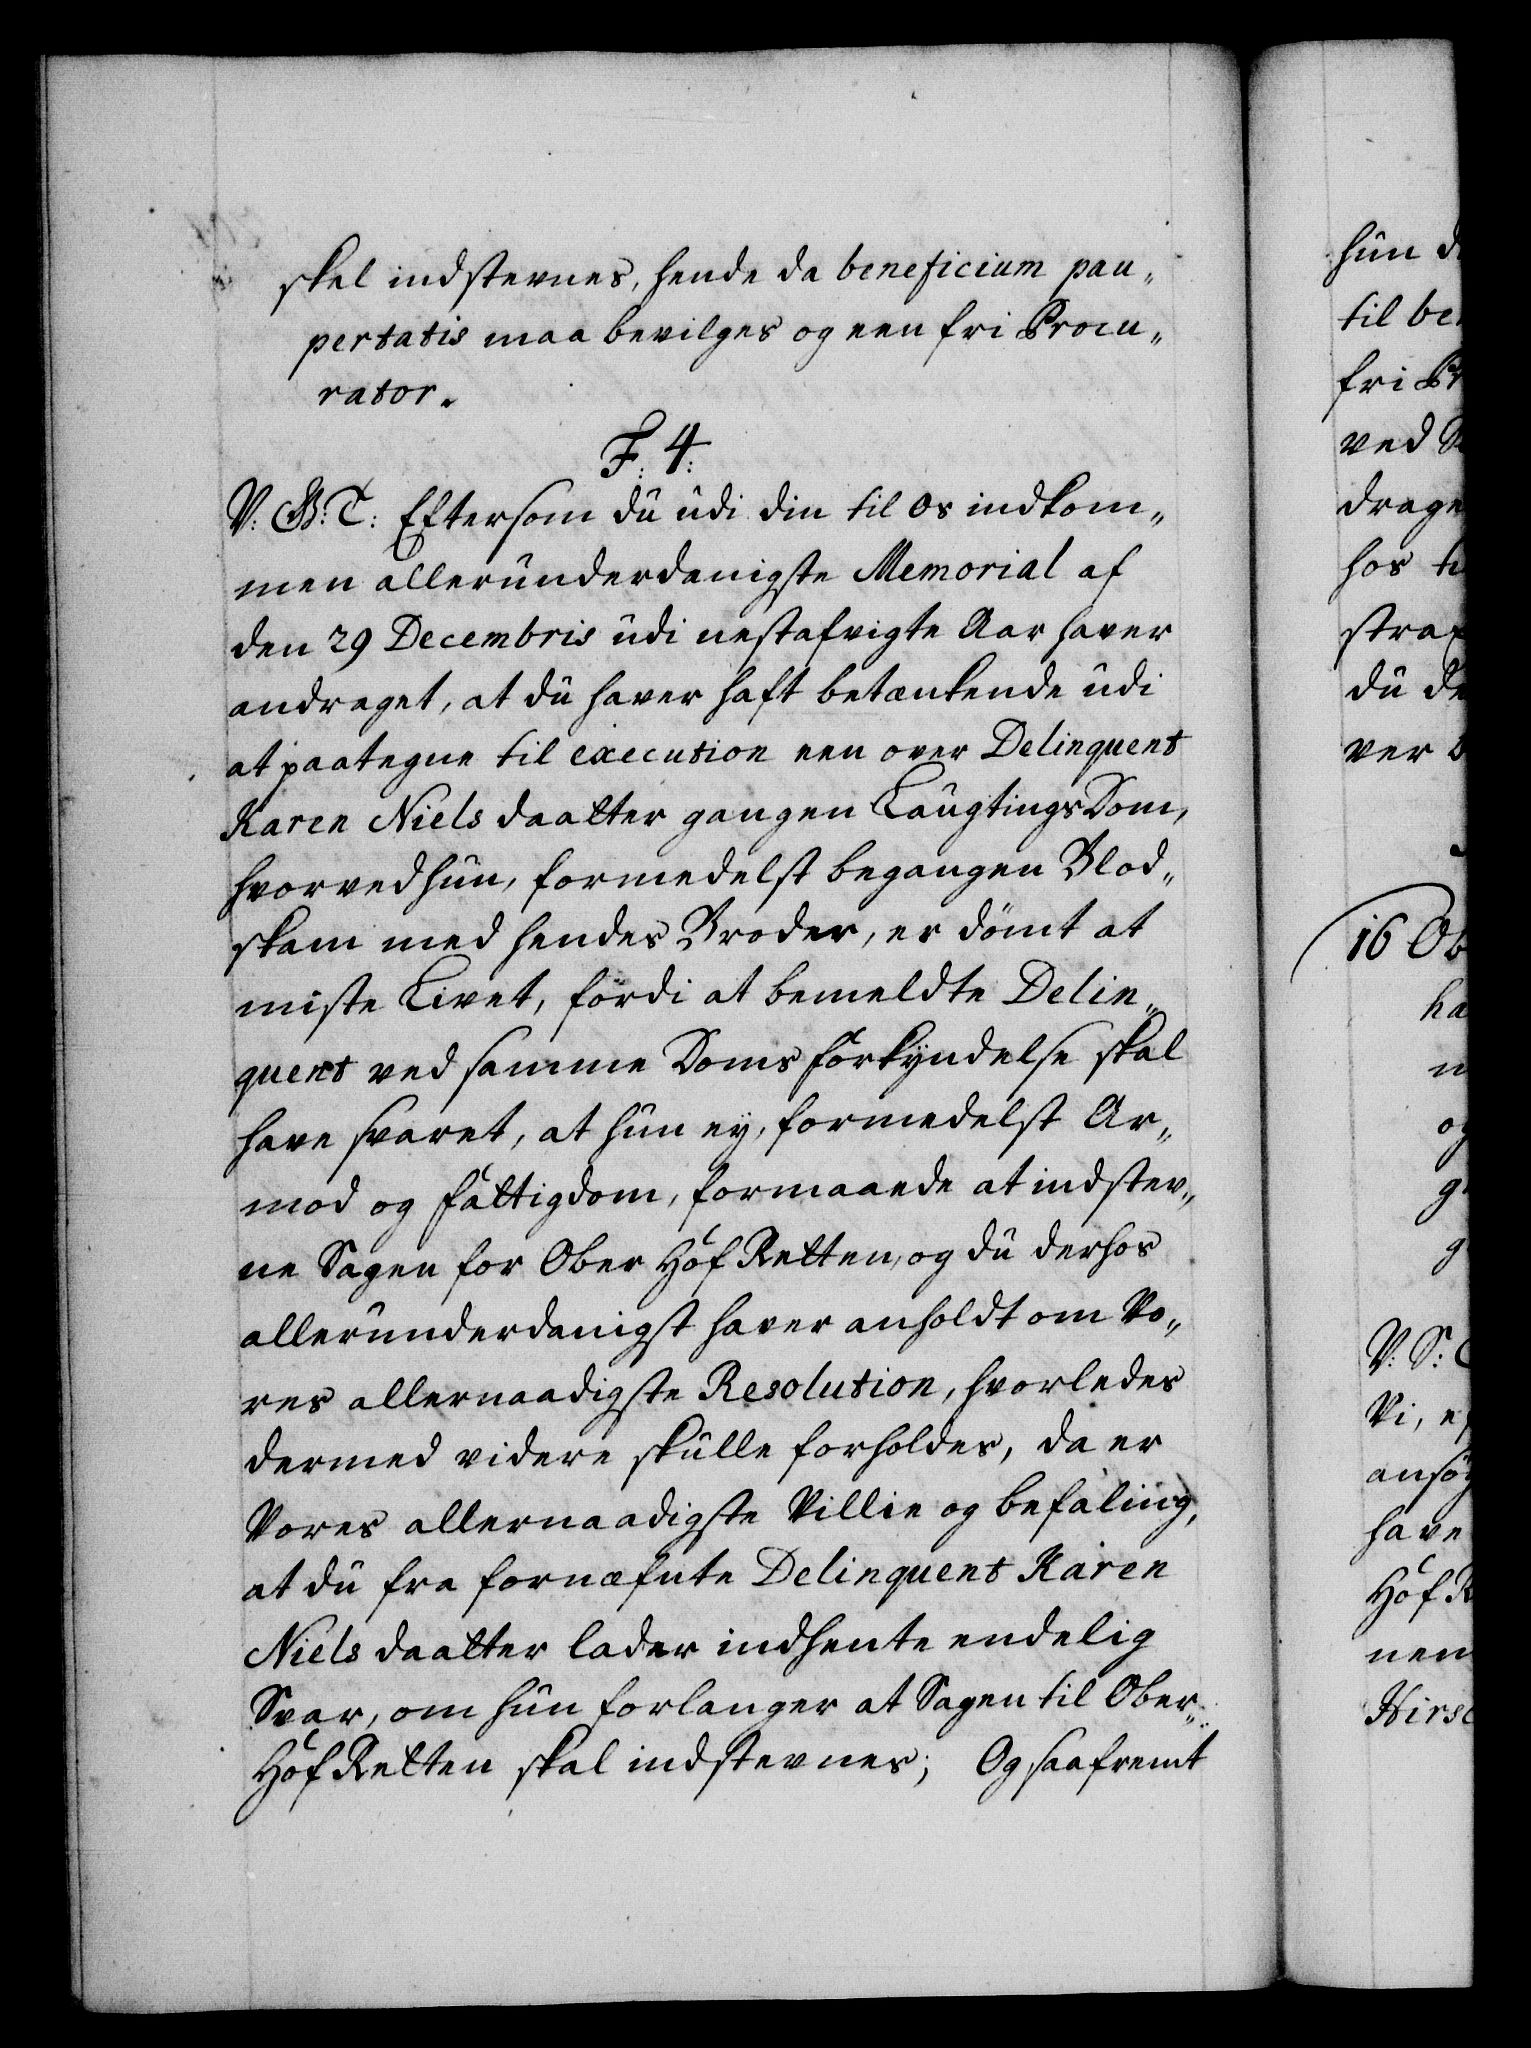 skal indstevnes, hende da beneficium pau„
pertatis maa bevilges og een fri Procu„
rator.
F: 4:
V: G: T: Eftersom du udi din til Os indkom„
men allerunderdanigste Memorial af
den 29 Decembris udi nestafvigte Aar haver
andraget, at du haver haft betænkende udi
at paategne til execution een over Delinquent
Karen Niels daatter gangen Laugtings Dom,
hvorved hun, formedelst begangen Blod„
skam med hendes Broder, er dömt at
miste Livet, fordi at bemeldte Delin„
quent ved samme Doms forkyndelse skal
have svaret, at hun ey, formedelst Ar„
mod og fattigdom, formaaede at indstev„
ne Sagen for Ober Hof Retten, og du derhos
allerunderdanigst haver anholdt om Vo„
res allernaadigste Resolution, hvorledes
dermed videre skulle forholdes, da er
Vores allernaadigste Villie og befaling,
at du fra fornæfnte Delinquent Karen
Niels daatter lader indhente endelig
Svar, om hun forlanger at Sagen til Ober„
Hof Retten skal indstevnes; Og saafremt
hun
til
fri
ved
hos
du
ver
16
V: S:
Vi,
have
Hof